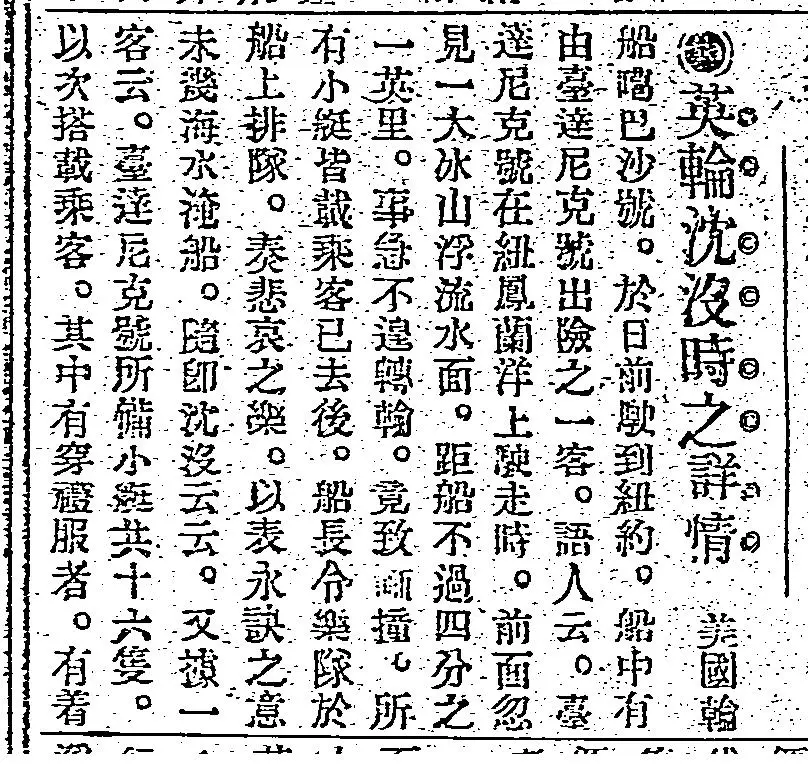 英輪沈沒時之詳情　美國輪
船喝巴沙號。於日前駛到紐約。船中有
由臺達尼克號出險之一客。語人云。臺
達尼克號在紐鳳蘭洋上駛走時。前面忽
見一大冰山浮流水面。距船不過四分之
一英里。事急不遑轉輪。竟致衝撞。所
有小艇皆載乘客已去後。船長令樂隊於
船上排隊。奏悲哀之樂。以表永訣之意
未幾海水淹船。隨即沈沒云云。又據一
客云。臺達尼克號所備小艇共十六隻。
以次搭載乘客。其中有穿禮服者。有着